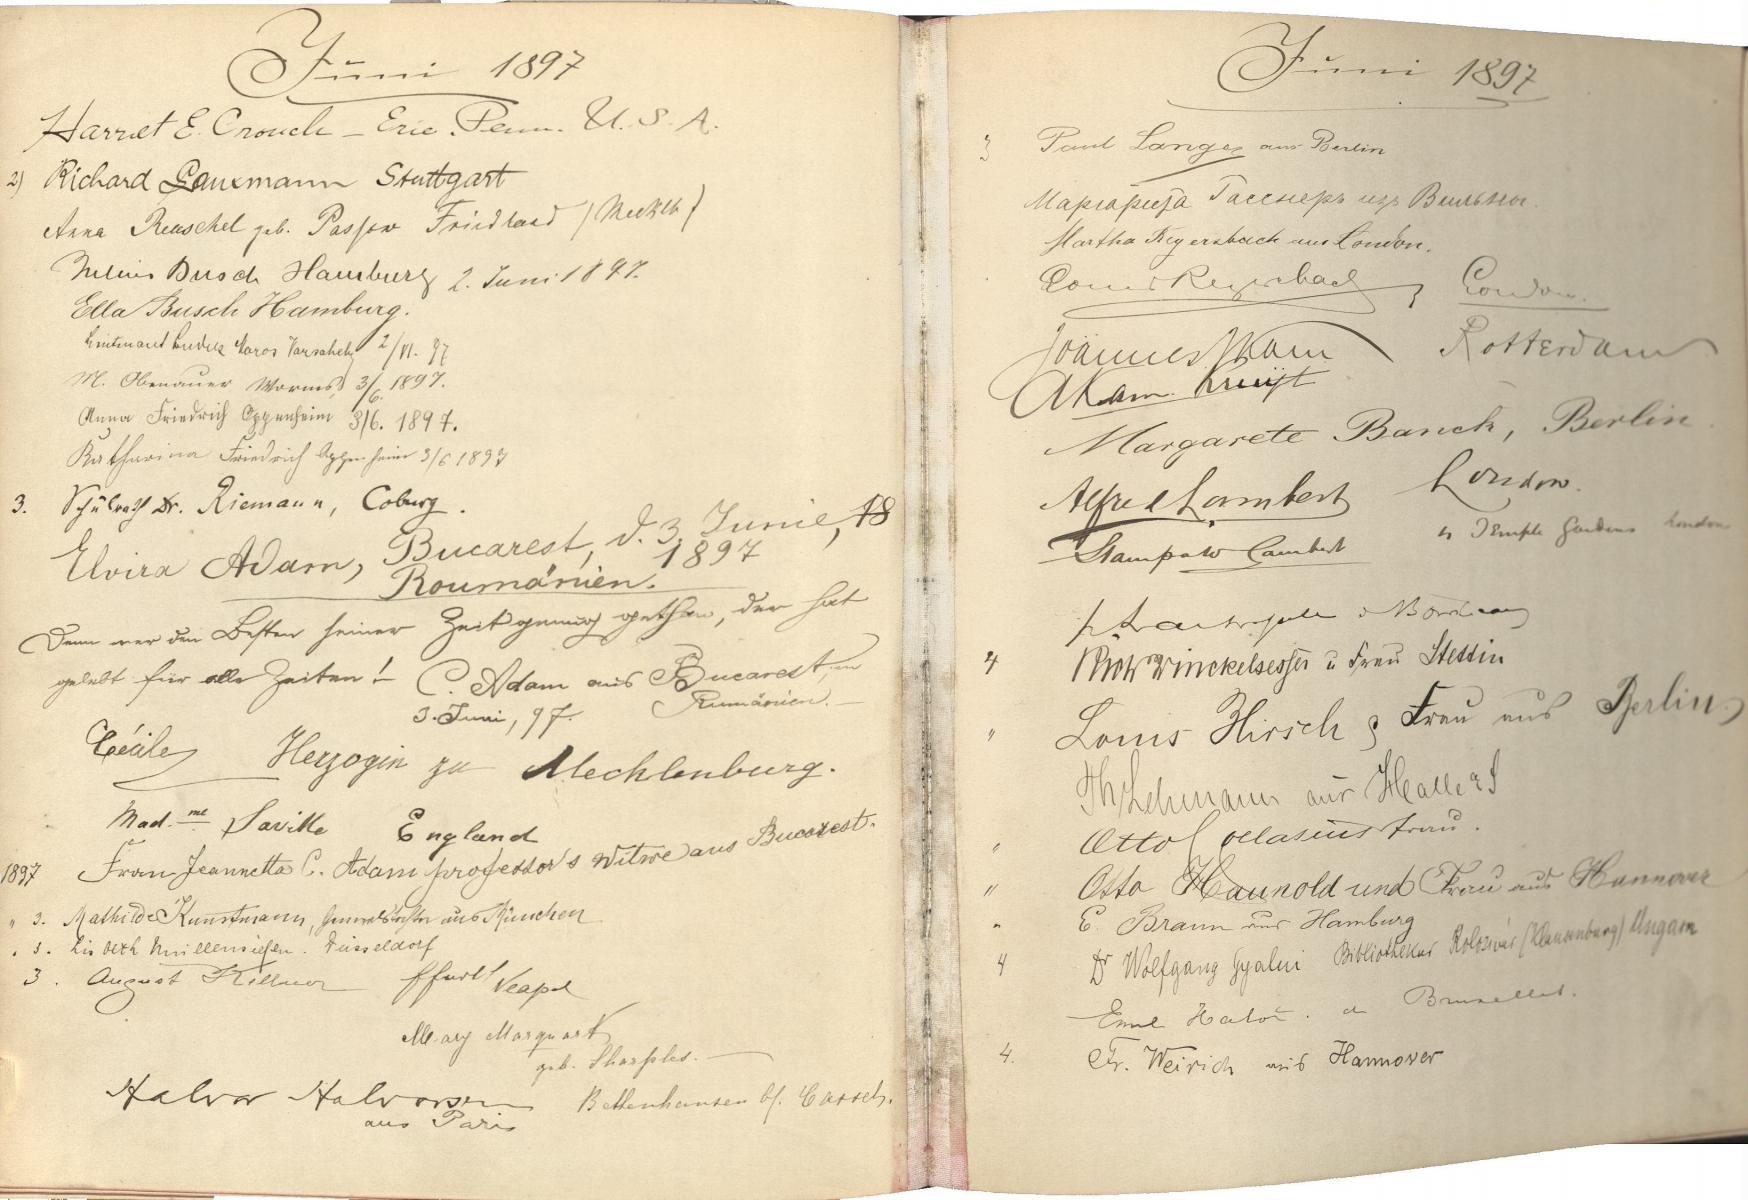 Juni 1897
Harriet E. Crouch – Erie. Penn. U. S. A.
2) Richard Stuttgart
Anna geb. Passow Friedland (Mecklb)
Julius Busch Hamburg 2. Juni 1897.
Ella Busch Hamburg.
Lieutenant 2/VI. 97
M. Obenauer Worms, 3/6. 1897.
Anna Friedrich Oppenheim 3/6. 1897.
Katharina Friedrich Oppenheim 3/6 1897
3. Schulrath Dr. Riemann, Coburg.
Elvira Adam, Bucarest, d. 3. Junie, 18
1897
Roumänien.
Denn wer den Besten seiner Zeit genug gethan, der hat
gelebt für alle Zeiten! C. Adam aus Bucarest, in
3. Juni, 97. Rumänien.
Cécile Herzogin zu Mecklenburg.
Mad.me Saville England
1897 Frau Jeannetta C. Adam professor's Witwe aus Bucarest.
" 3. Mathilde Kunstmann, aus München
" 3. Lisbeth Müllensiefen. Düsseldorf
3. August Killner Neapel
Mary Marquart
geb. Sharples.
Halvor Halvorsen Bettenhausen b/. Cassel.
aus Paris
Juni 1897
3 Paul Lange aus Berlin
Маргарита Гасснеръ изъ Вильны.
Martha Regersbach aus London.
Louis Regersbach, London.
Joannes Kam Rotterdam
A Kam. Kruijt
Margarete Banck, Berlin.
Alfred Lambert London.
Lambert 4 Temple Gardens London
Bordeaux
4 Winckelsesser u Frau Stettin
" Louis Hirsch & Frau aus Berlin
Th Lehmann aus Halle a S
" Otto Frau.
" Otto Haunold und Frau aus Hannover
" E. Braun aus Hamburg
4 Dr Wolfgang Gyalui Bibliothekar Kolozsvár (Klausenburg) Ungarn
Bruxelles.
4. Fr. Weirich aus Hannover